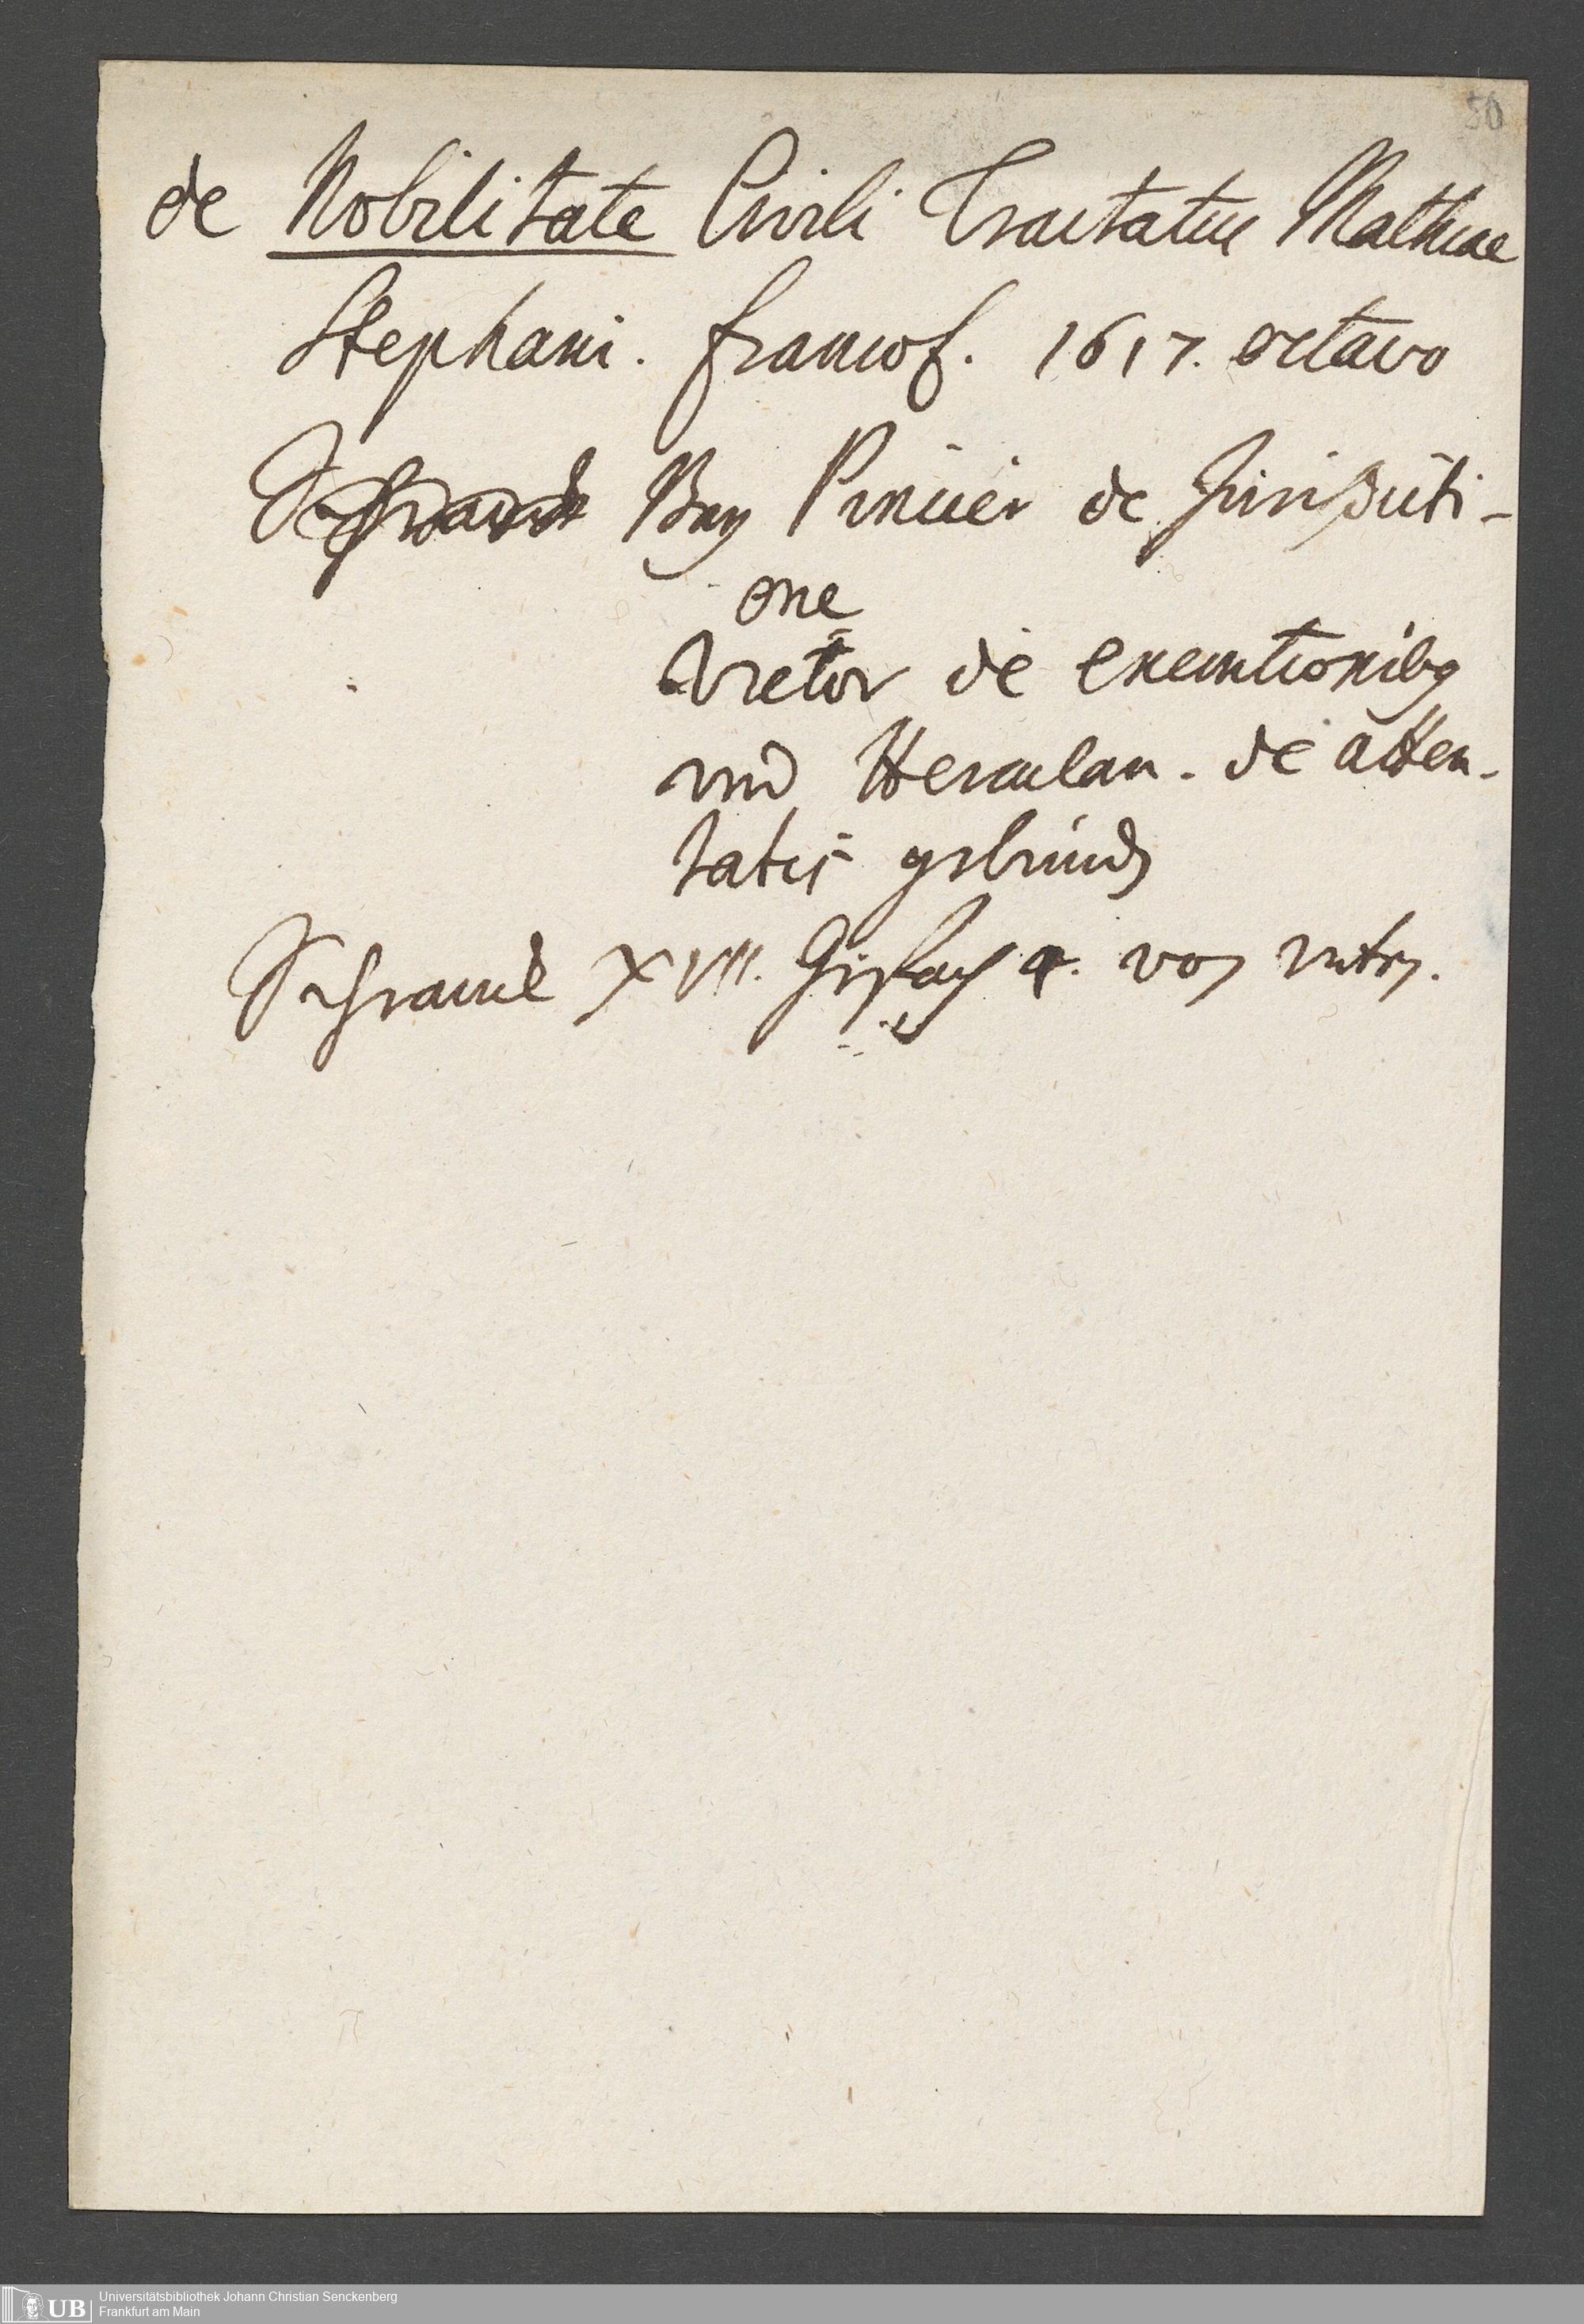 50
de Nobilitate Civili Tractatus Mathiae
Stephani. francof. 1617. octavo
Schranck Bey Pincier de Jurisdicti-
one
Vietor de exemtionibq
vnd Herculan. de atten-
tatis gebund
Schranck XVII. Gefach 9. von vnten.
Universitätsbibliothek Johann Christian Senckenberg
UB Frankfurt am Main